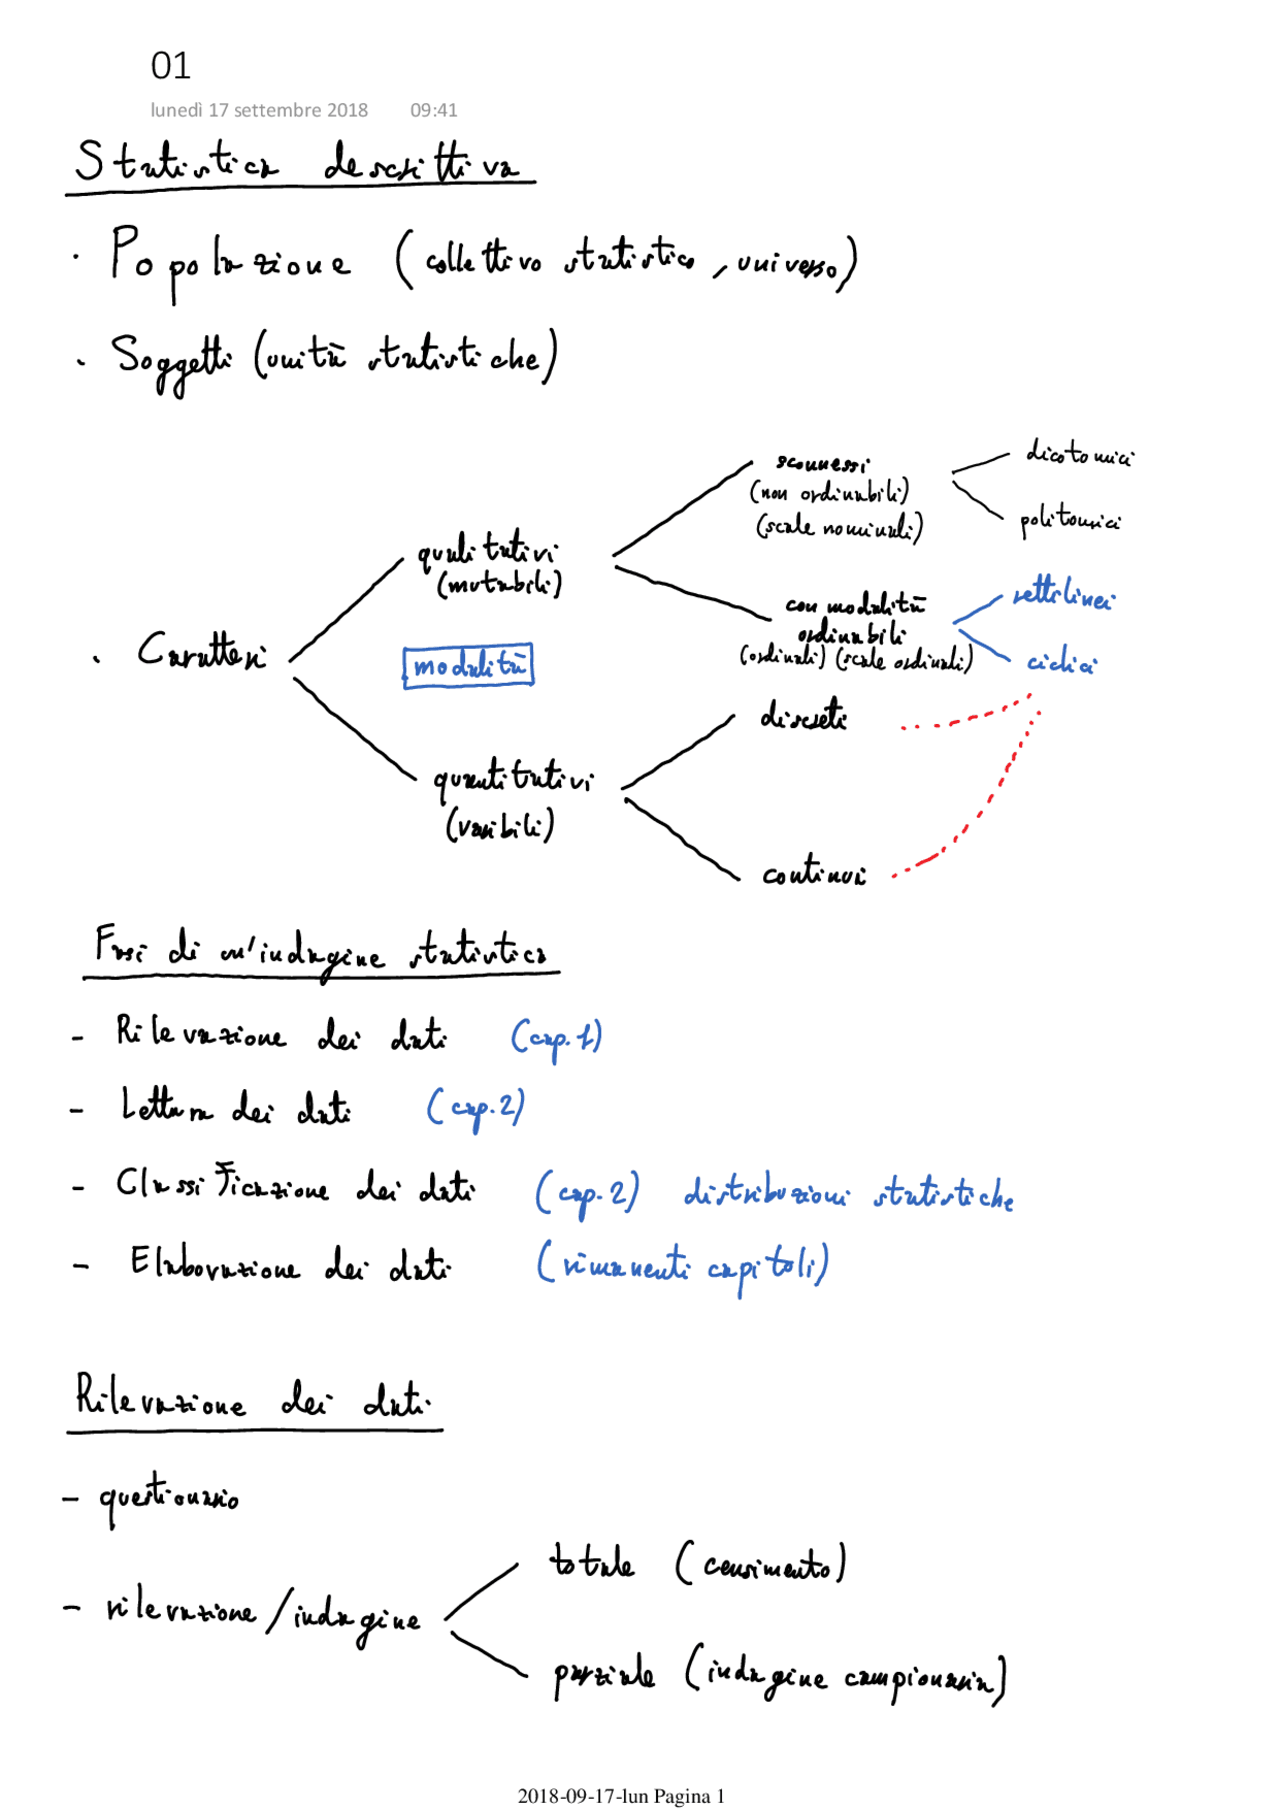 01
lunedì 17 settembre 2018 09:41
Statistica descrittiva
· Popolazione (collettivo statistico, universo)
· Soggetti (unità statistiche)
dicotomici
sconnessi
(non ordinabili)
(scale nominali)
politomici
qualitativi
(mutabili)
con modalità
ordinabili
(ordinali) (scale ordinali)
rettilinei
ciclici
· Caratteri
modalità
discreti
quantitativi
(varibili)
continui
Fasi di un'indagine statistica
- Rilevazione dei dati (cap. 1)
- Lettura dei dati (cap. 2)
- Classificazione dei dati (cap. 2) distribuzioni statistiche
- Elaborazione dei dati (rimanenti capitoli)
Rilevazione dei dati
- questionario
totale (censimento)
- rilevazione / indagine
parziale (indagine campionaria)
2018-09-17-lun Pagina 1